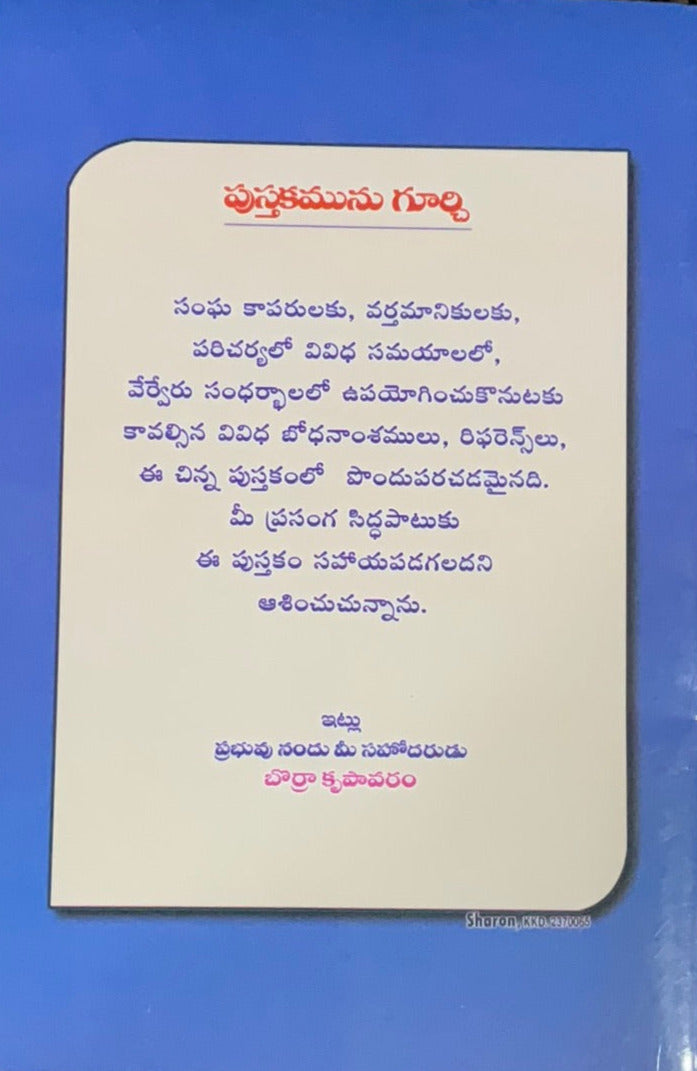 పుస్తకమును గూర్చి
సంఘ కాపరులకు, వర్తమానికులకు,
పరిచర్యలో వివిధ సమయాలలో,
వేర్వేరు సంధర్భాలలో ఉపయోగించుకొనుటకు
కావల్సిన వివిధ బోధనాంశములు, రిఫరెన్స్‌లు,
ఈ చిన్న పుస్తకంలో పొందుపరచడమైనది.
మీ ప్రసంగ సిద్ధపాటుకు
ఈ పుస్తకం సహాయపడగలదని
ఆశించుచున్నాను.
ఇట్లు
ప్రభువు నందు మీ సహోదరుడు
బొర్రా కృపావరం
Sharon, KKD. 2370065